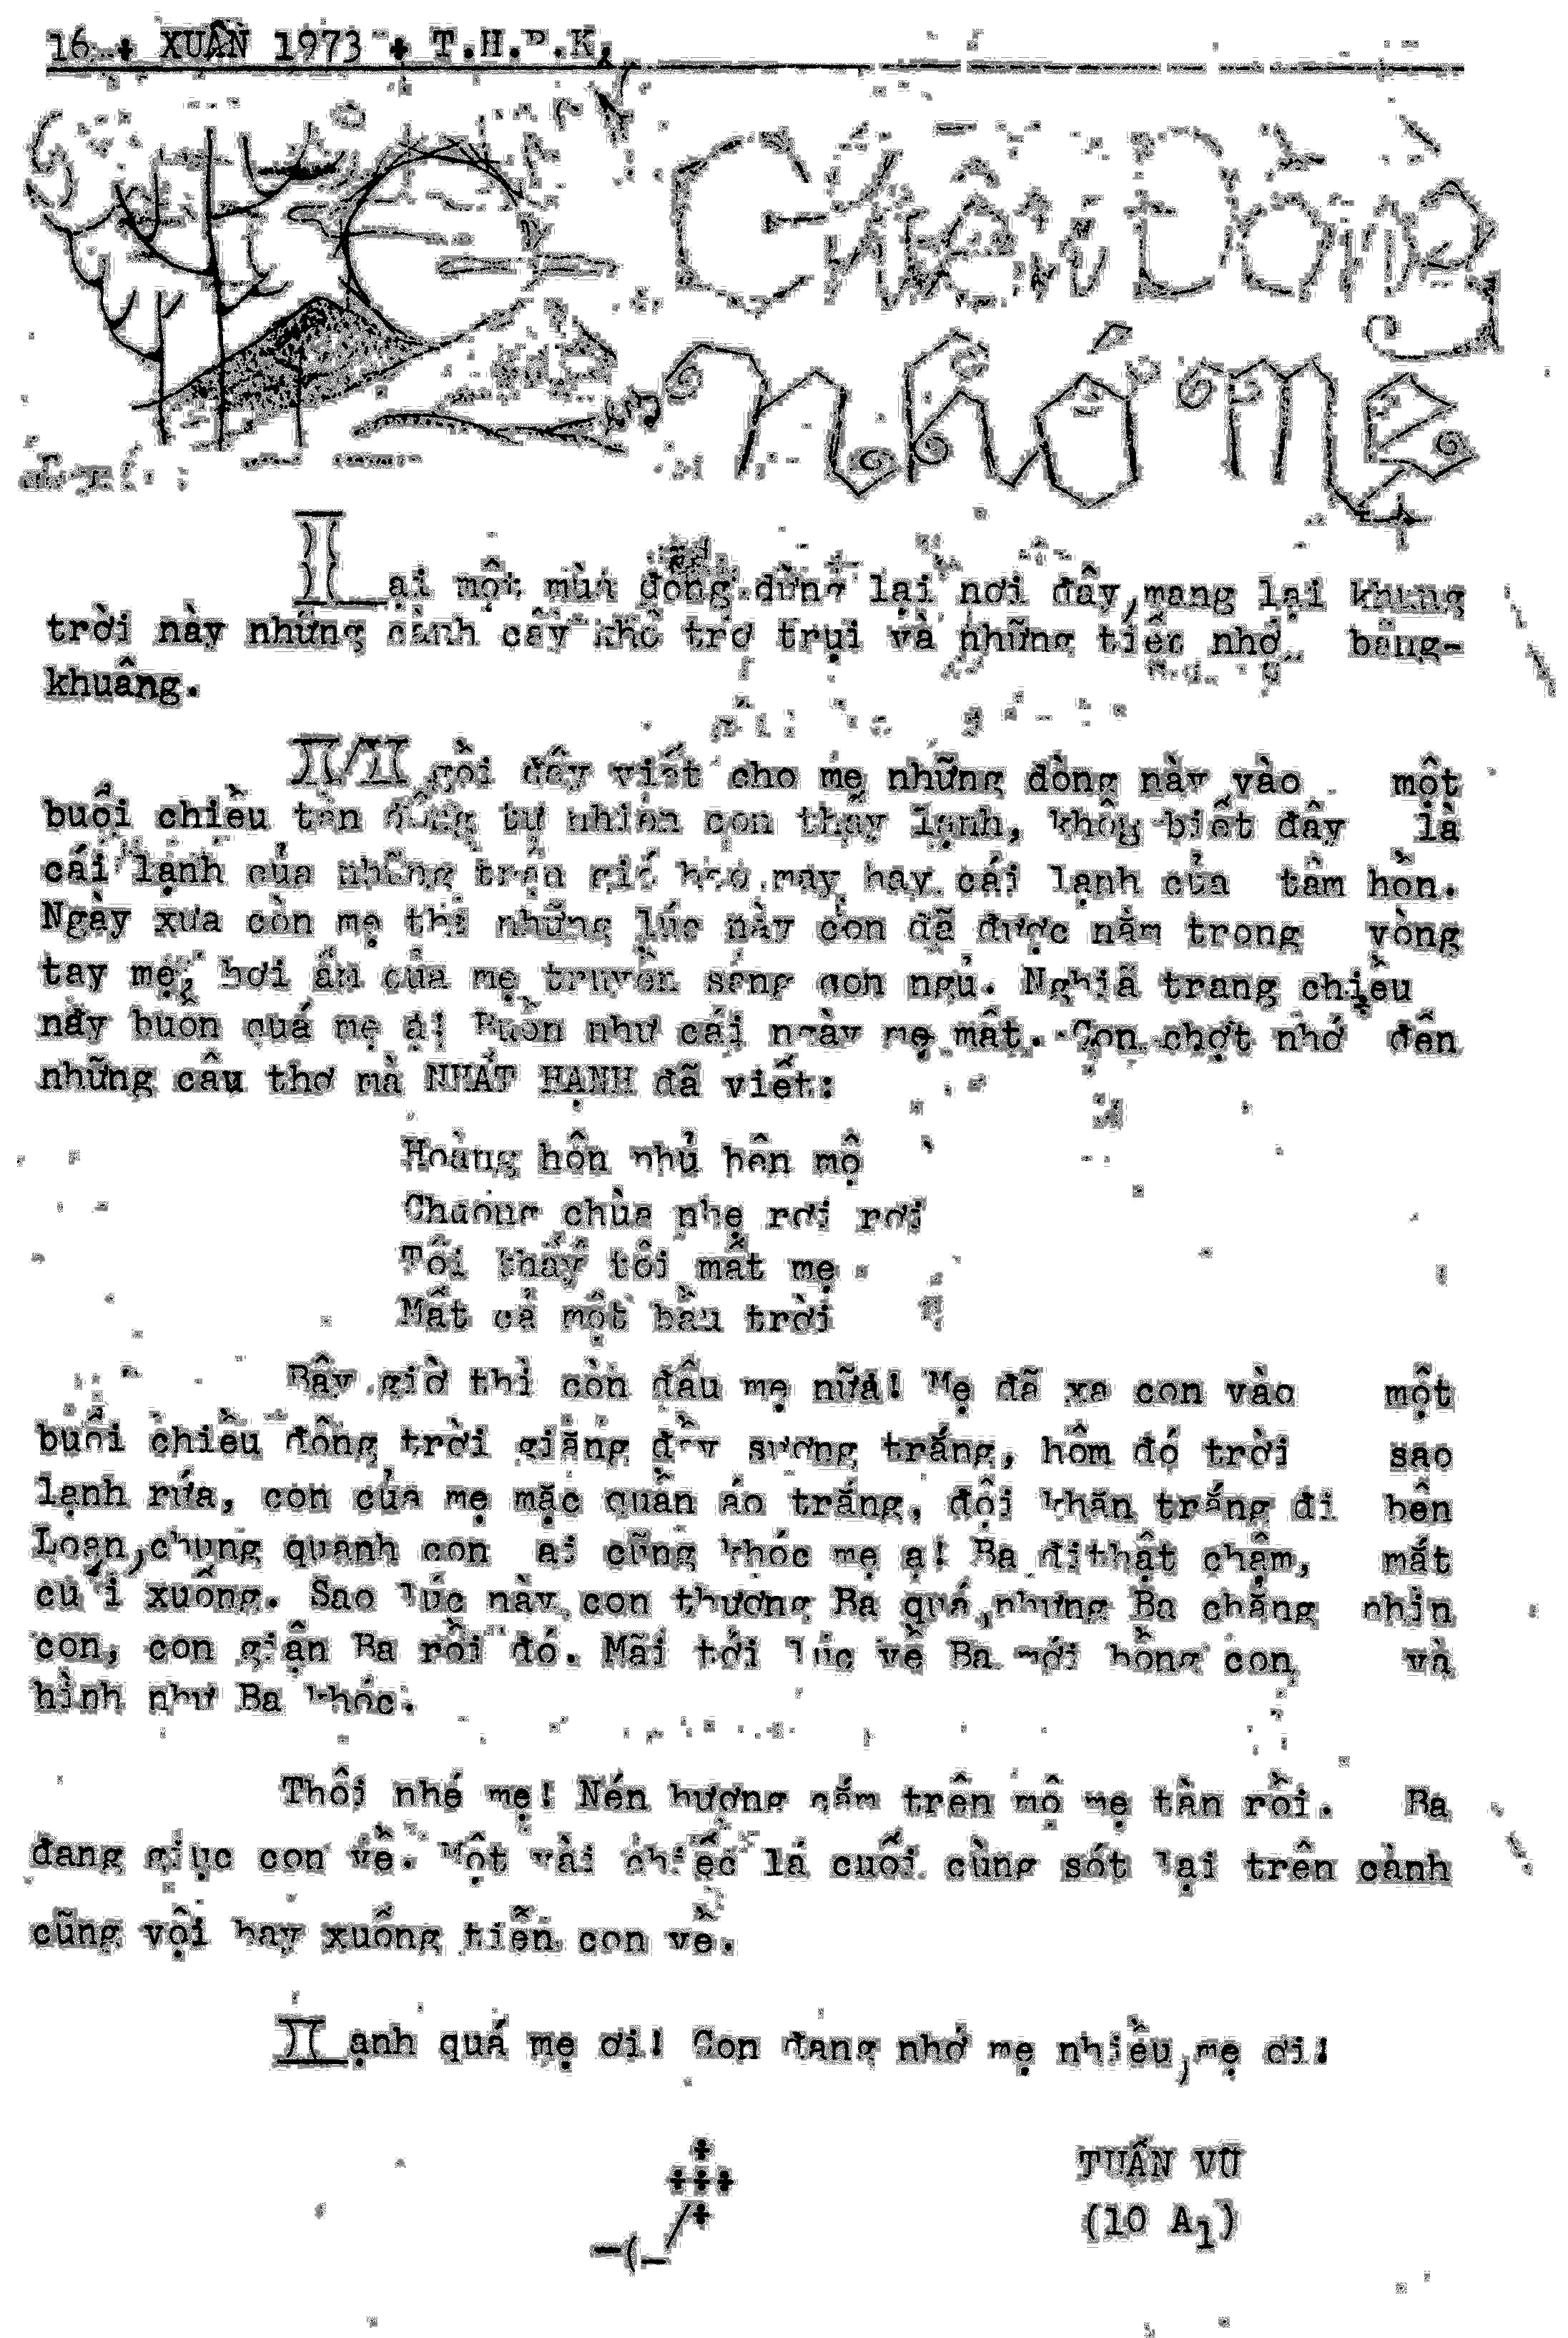 16 + XUÂN 1973 + T.H.P.K.
Chiều Đông
nhớ mẹ
Lại một mùa đông dừng lại nơi đây, mang lại khung
trời này những cành cây khô trơ trụi và những tiếc nhớ bâng-
khuâng.
Ngồi đây viết cho mẹ những dòng này vào một
buổi chiều tàn đông tự nhiên con thấy lạnh, không biết đây là
cái lạnh của những trận gió heo may hay cái lạnh của tâm hồn.
Ngày xưa còn mẹ thì những lúc này con đã được nằm trong vòng
tay mẹ, hơi ấm của mẹ truyền sang con ngủ. Nghĩa trang chiều
nay buồn quá mẹ ạ! Buồn như cái ngày mẹ mất. Con chợt nhớ đến
những câu thơ mà NHẤT HẠNH đã viết:
Hoàng hôn phủ bên mộ
Chuông chùa nhẹ rơi rơi
Tôi thấy tôi mất mẹ
Mất cả một bầu trời
Bây giờ thì còn đâu mẹ nữa! Mẹ đã xa con vào một
buổi chiều đông trời giăng đầy sương trắng, hôm đó trời sao
lạnh rứa, con của mẹ mặc quần áo trắng, đội khăn trắng đi bên
Loan, chung quanh con ai cũng khóc mẹ ạ! Ba đi thật chậm, mắt
cúi xuống. Sao lúc này con thương Ba quá, nhưng Ba chẳng nhìn
con, con giận Ba rồi đó. Mãi tới lúc về Ba mới bồng con và
hình như Ba khóc.
Thôi nhé mẹ! Nén hương cắm trên mộ mẹ tàn rồi. Ba
đang giục con về. Một vài chiếc lá cuối cùng sót lại trên cành
cũng vội bay xuống tiễn con về.
Lạnh quá mẹ ơi! Con đang nhớ mẹ nhiều, mẹ ơi!
TUẤN VŨ
(10 A1)